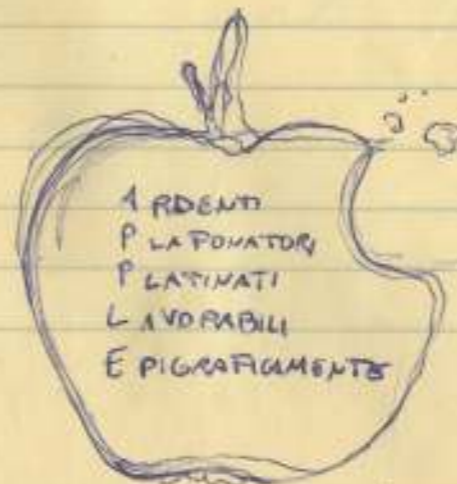 ARDENTI
PLAFONATORI
PLATINATI
LAVORABILI
EPIGRAFICAMENTE